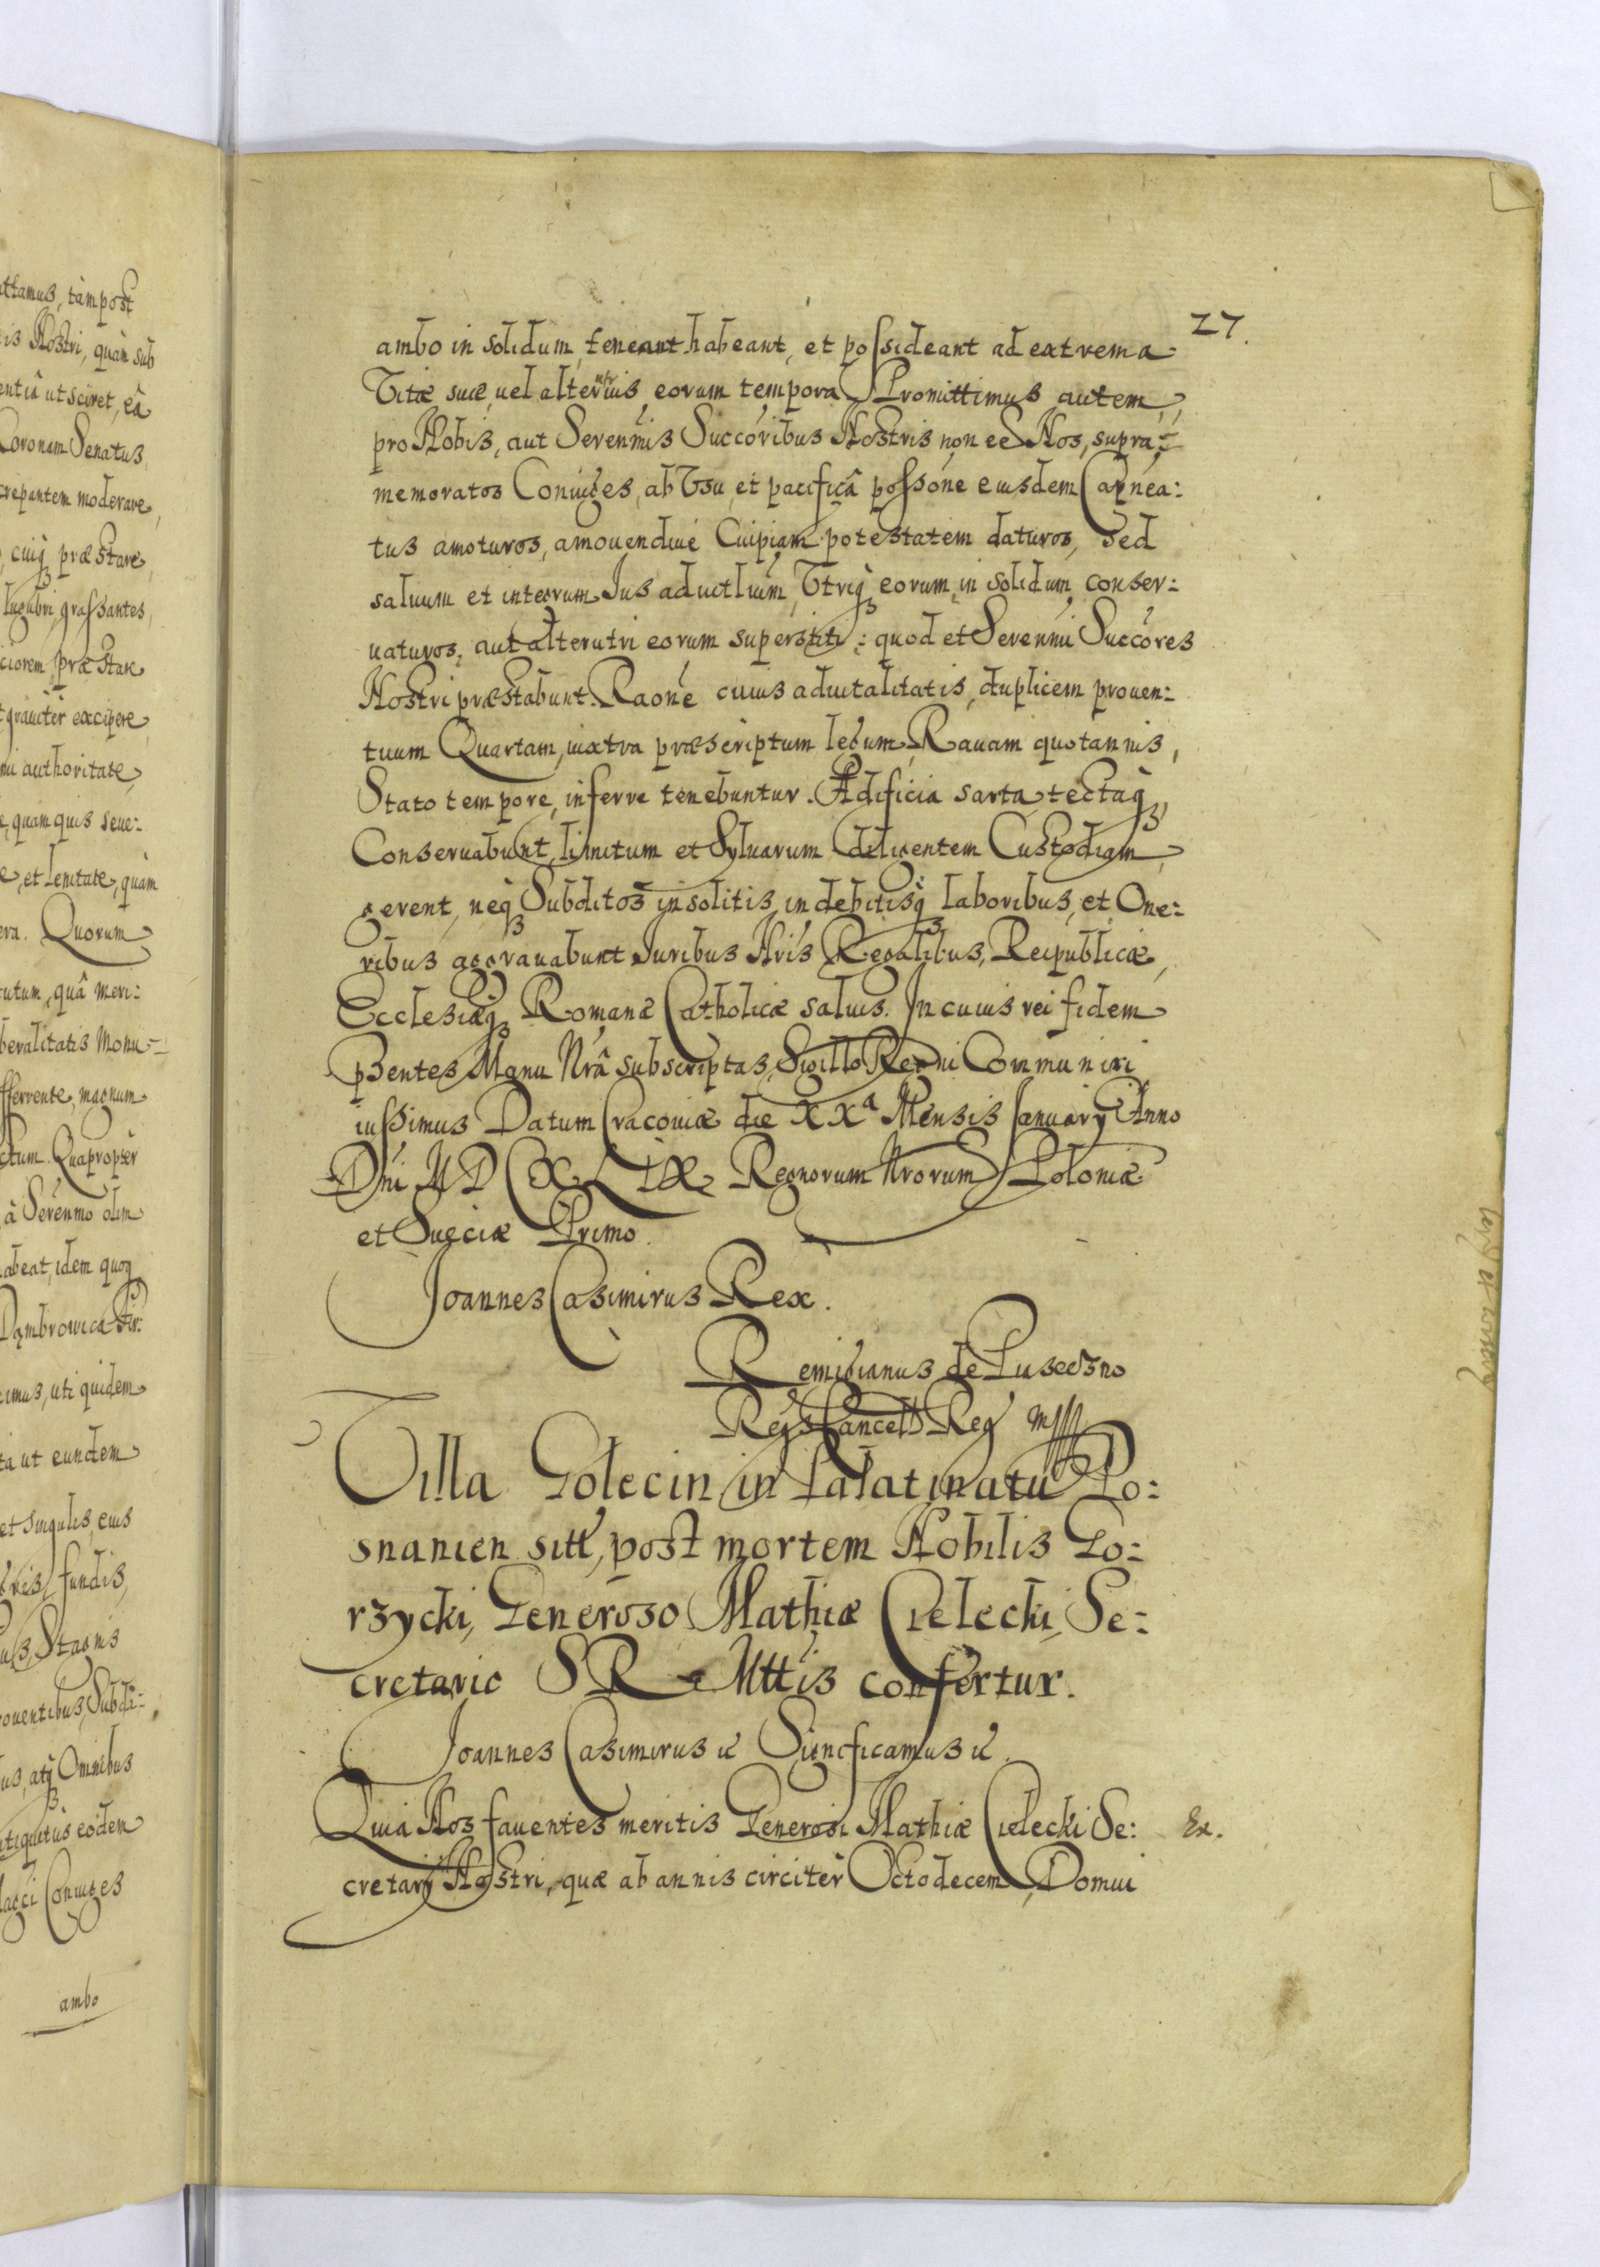 attamus, tàm post
is Nostri, quàm sub
entiâ ut sciret, eâ
Coronam Senatus
crepantem moderare,
cuiq₃ præstare,
lugubri, grassantes,
ciorem, præstare
graviter excipere
authoritate,
quam quis seue:
et lenitate, quàm
era. Quorum
tutum, quâ meri:
beralitatis Monu:
fferuente, magnum
ctum. Quapropter
â Serenmo olim
abeat, idem quoq₃
Dąmbrowica Fir:
imus, uti quidem
ta ut eundem
et Singulis eius
fundis,
Stagnis
ouentibus, Subdi:
us, atq₃ Omnibus
ntiquitùs eodem
Coniuges
ambo
27.
ambo in solidum, teneant habeant, et possideant ad extrema
Vitæ suæ, uel alterius eorum tempora. Promittimus autem,
utr
pro Nobis, aut Serenmis Succoribus Nostris, non ee Nos, supra:
memoratos Coniuges, ab Vsu, et pacificâ possone eiusdem Capnea:
tus amoturos, amouendiue Cuipiam potestatem daturos, sed
saluum et integrum Jus aduitlium, Vtriq₃ eorum, in solidum, conser:
uaturos, aut alterutri eorum superstiti: quod et Serenmi Succores
Nostri præstabunt. Raone cuius aduitalitatis, duplicem prouen:
tuum Quartam, iuxtra præscriptum legum, Rauam quotannis,
Stato tempore, inferre tenebuntur. Ædificia sarta tectaq₃
Conseruabunt, limitum et Syluarum diligentem Custodiam
gerent, neq₃ Subditos insolitis, indebitisq₃ laboribus, et One:
ribus aggrauabunt Juribus Nris Regalibus, Reipublicæ,
Ecclesiæq₃ Romanæ Catholicæ saluis. In cuius rei fidem
pzentes Manu Nrâ subscriptas, Sigillo Regni Communiri
iussimus Datum Cracouiæ die XXª Mensis January Anno
Dni MDCXLIX Regnorum Nrorum Poloniæ
et Sueciæ Primo.
Joannes Casimirus Rex.
Remigianus de
Regs Cancell Reg mpp
Villa Golecin in Palatinatu Po:
snanien sitt, post mortem Nobilis Go:
rzycki, Generoso Mathiæ Cielecki, Se:
cretario S R Mttis confertur.
Joannes Casimirus &c Significamus &c.
Quia Nos fauentes meritis Generosi Mathiæ Cielecki Se:
Ex.
cretary Nostri, quæ ab annis circiter Octodecem, Domui